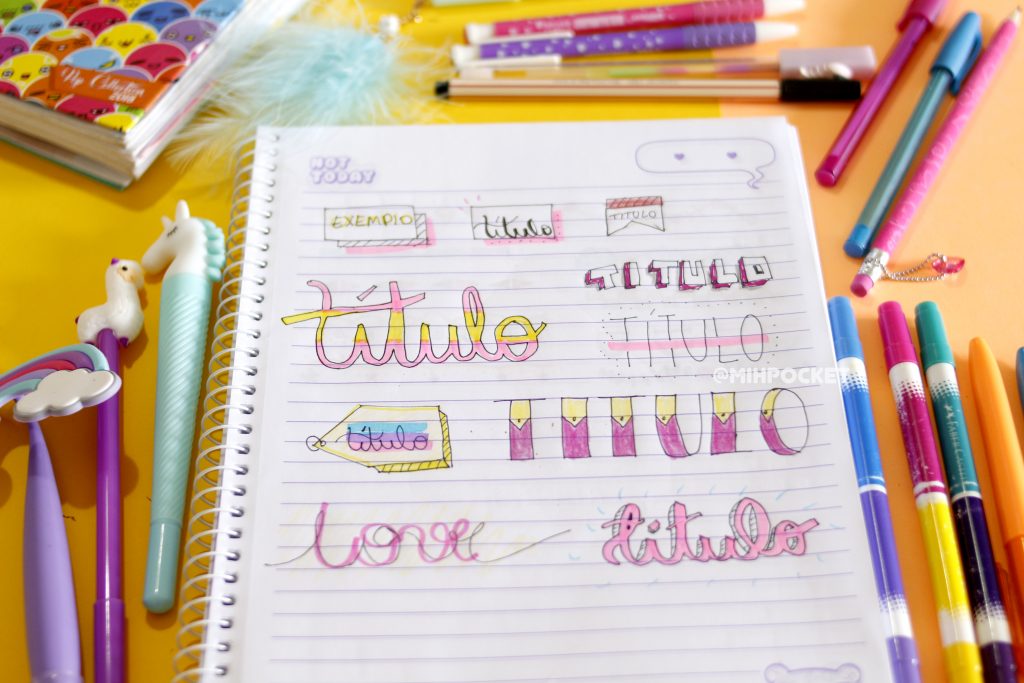 NOT
TODAY
EXEMPLO
título
TITULO
título
TITULO
TÍTULO
@MIHPOCKET
título
TITULO
love
titulo